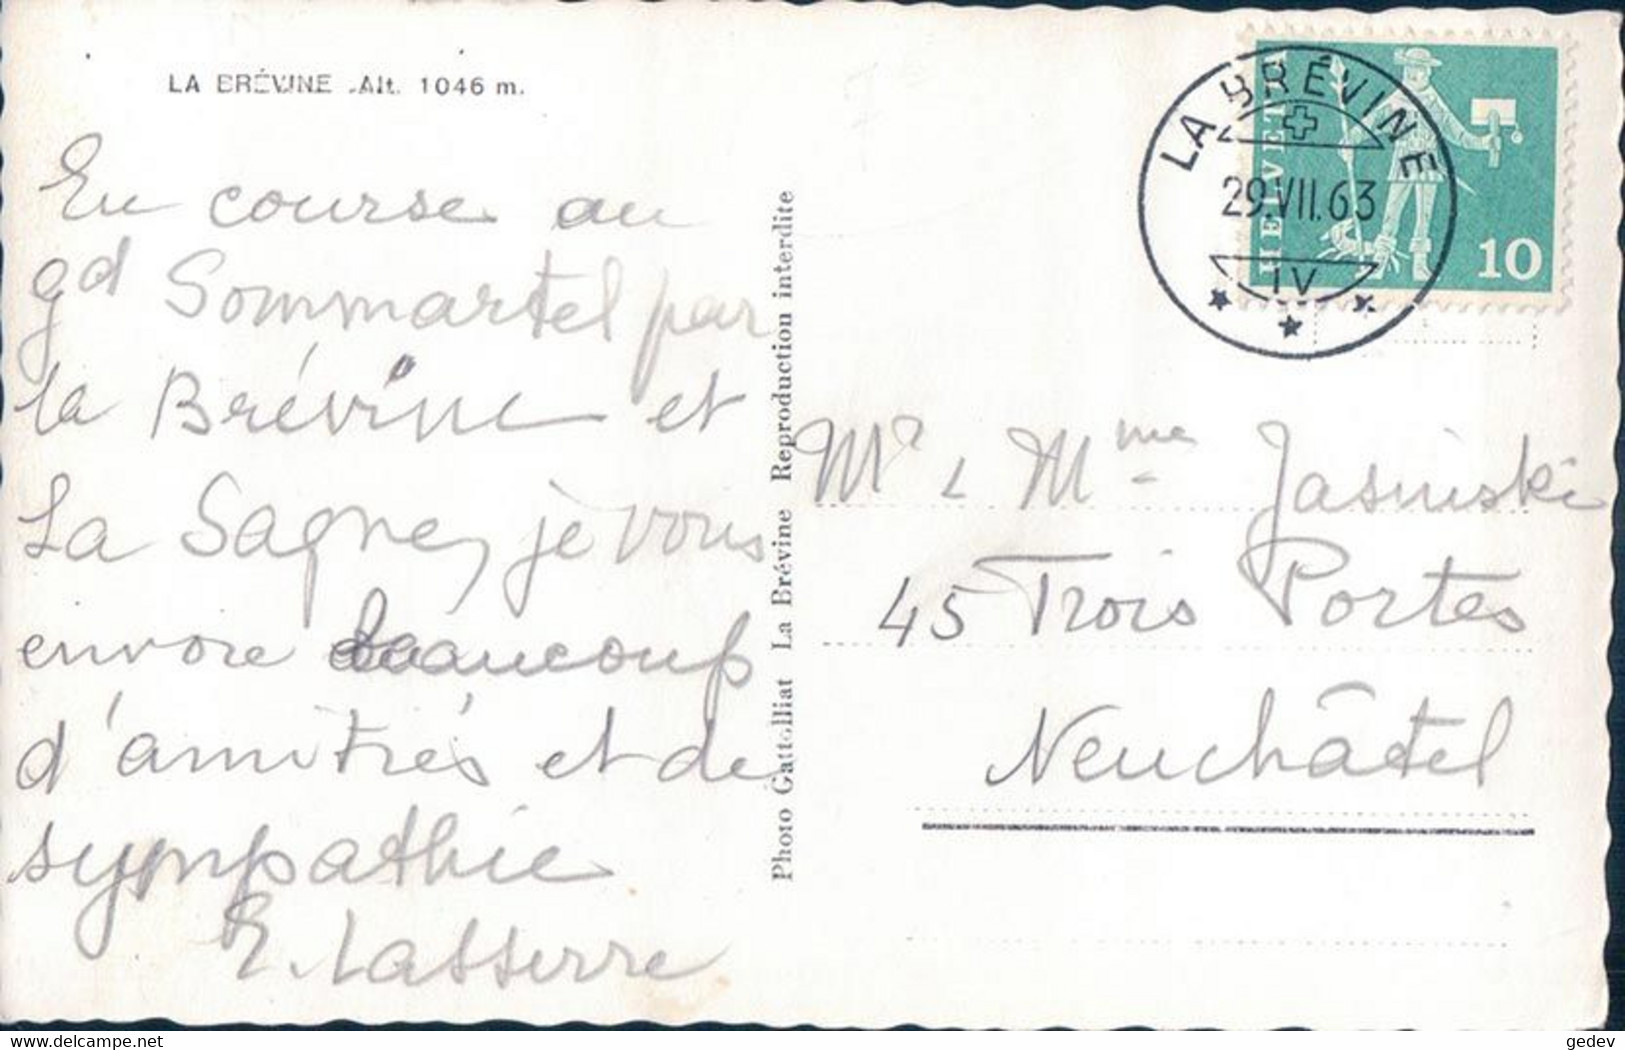 LA BRÉVINE Alt. 1046 m.
En course au
gd Sommartel par
la Brévine et
La Sagne, je vous
envoie beaucoup
d'amitiés et de
sympathie
E. Lasserre
Photo Gattolliat La Brévine Reproduction interdite
LA BRÉVINE
29.VII.63
IV
HELVETIA
10
Mr & Mme Jasinski
45 Trois Portes
Neuchâtel
delcampe.net
gedev